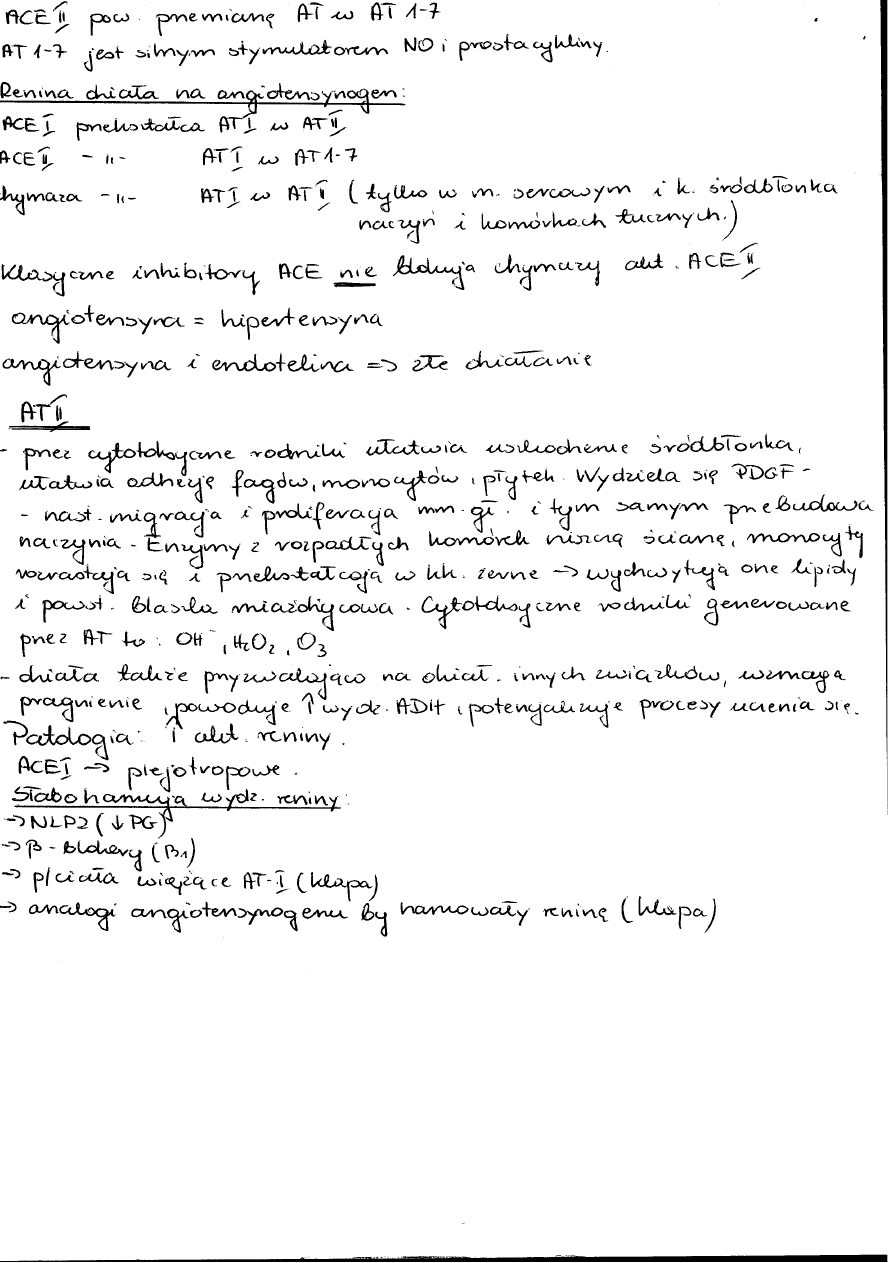 ACE II pow. przemianę AT w AT 1-7
AT 1-7 jest silnym stymulatorem NO i prostacykliny.
Renina działa na angiotensynogen:
ACE I przekształca AT I w AT II
ACE II - 〃 - AT I w AT 1-7
chymaza - 〃 - AT I w AT II (tylko w m. sercowym i k. śródbłonka
naczyń i komórkach tucznych.)
Klasyczne inhibitory ACE nie blokują chymazy akt. ACE II
angiotensyna = hipertensyna
angiotensyna i endotelina => złe działanie
AT II
- przez cytotoksyczne rodniki ułatwia uszkodzenie śródbłonka,
ułatwia adhezję fagów, monocytów i płytek. Wydziela się PDGF -
- nast. migracja i proliferacja mm. gł. i tym samym przebudowa
naczynia. Enzymy z rozpadłych komórek niszczą ścianę, monocyty
rozrastają się i przekształcają w kk. żerne → wychwytują one lipidy
i powst. blaszka miażdżycowa. Cytotoksyczne rodniki generowane
przez AT to: OH⁻, H₂O₂, O₃
- działa także przyzwalająco na dział. innych związków, wzmaga
pragnienie, powoduje ↑ wydz. ADH, potencjalizuje procesy uczenia się.
Patologia: ↑ akt. reniny.
ACE I → plejotropowe.
Słabo hamują wydz. reniny:
→ NLPZ (↓ PG)
→ β-blokery (B₁)
→ p/ciała wiążące AT-I (klapa)
→ analogi angiotensynogenu by hamowały reninę (klapa)